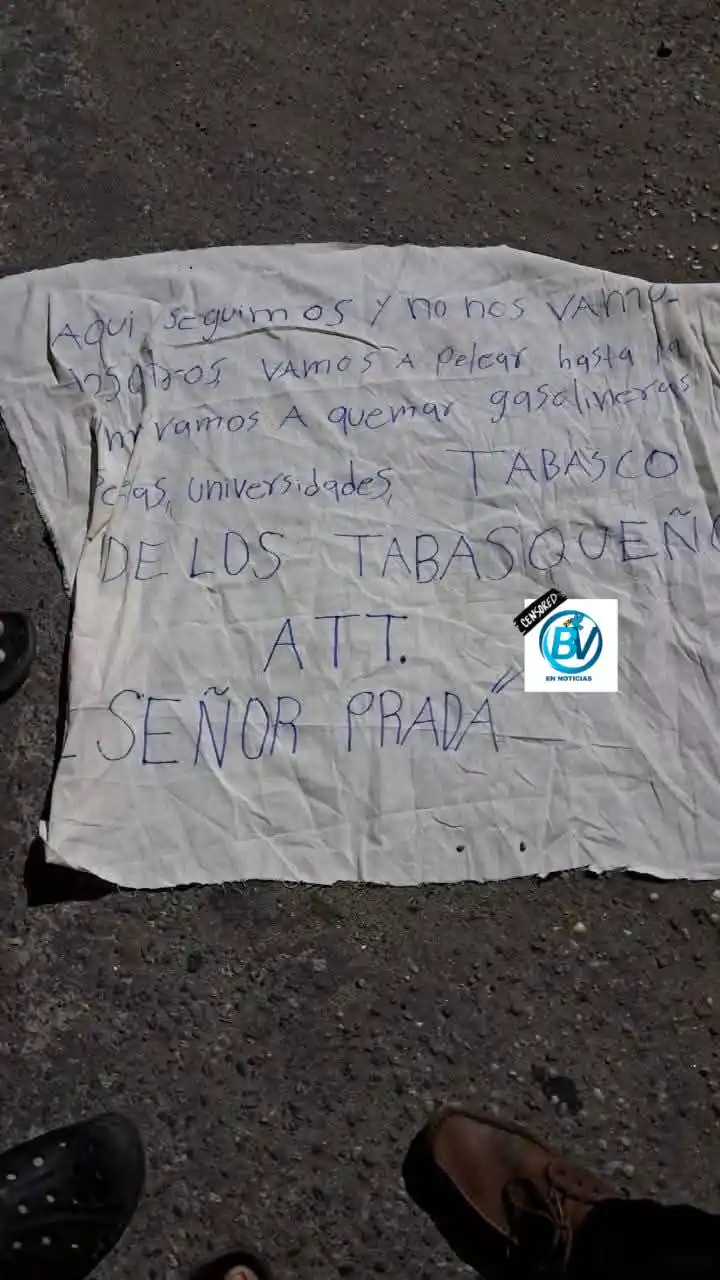 AQUI seguimos y no nos VAMO
nsotros, VAMOS A pelear hasta la
VAMOS A quemar gasolineras
universidades, TABASCO
DE LOS TABASQUEÑO
ATT.
CENSORED
BV
EN NOTICIAS
- SEÑOR PRADA"